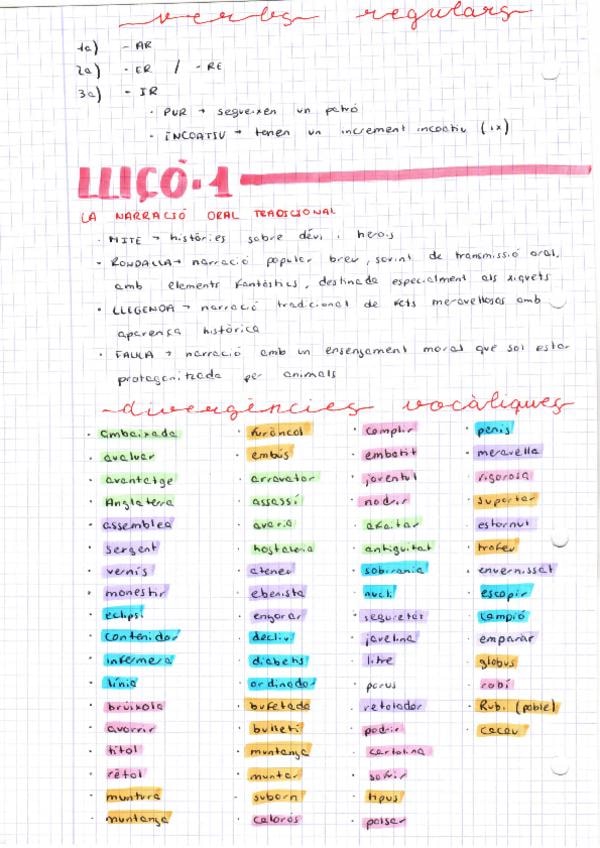 verbs regulars
1a) - AR
2a) - ER / - RE
3a) - IR
· PUR → segueixen un patró
· INCOATIU → tenen un increment incoatiu (ix)
LLIÇÓ·1
LA NARRACIÓ ORAL TRADICIONAL
· MITE → històries sobre déus i herois
· RONDALLA → narració popular breu, sovint de transmissió oral,
amb elements fantàstics, destinada especialment als xiquets
· LLEGENDA → narració tradicional de fets meravellosos amb
aparença històrica
· FAULA → narració amb un ensenyament moral que sol estar
protagonitzada per animals
divergències vocàliques
· ambaixada
· avaluar
· avantatge
· Anglaterra
· assemblea
· sergent
· vernís
· monestir
· eclipsi
· contenidor
· infermera
· línia
· brúixola
· avorrir
· títol
· rètol
· muntura
· muntanya
· furóncol
· embús
· arravatar
· assassí
· avaria
· hostaleria
· ateneu
· ebenista
· enyorar
· declivi
· diabetis
· ordinador
· bufetada
· butlletí
· muntanya
· muntar
· suborn
· calorós
· complir
· embotit
· joventut
· nodrir
· afaitar
· antiguitat
· sobirania
· nucli
· seguretat
· javelina
· litre
· porus
· retolador
· podrir
· cartolina
· sofrir
· tipus
· polsar
· penis
· meravella
· rigorosa
· suportar
· estornut
· trofeu
· envernissat
· escopir
· campió
· emparar
· globus
· robí
· Rubí (poble)
· cacau